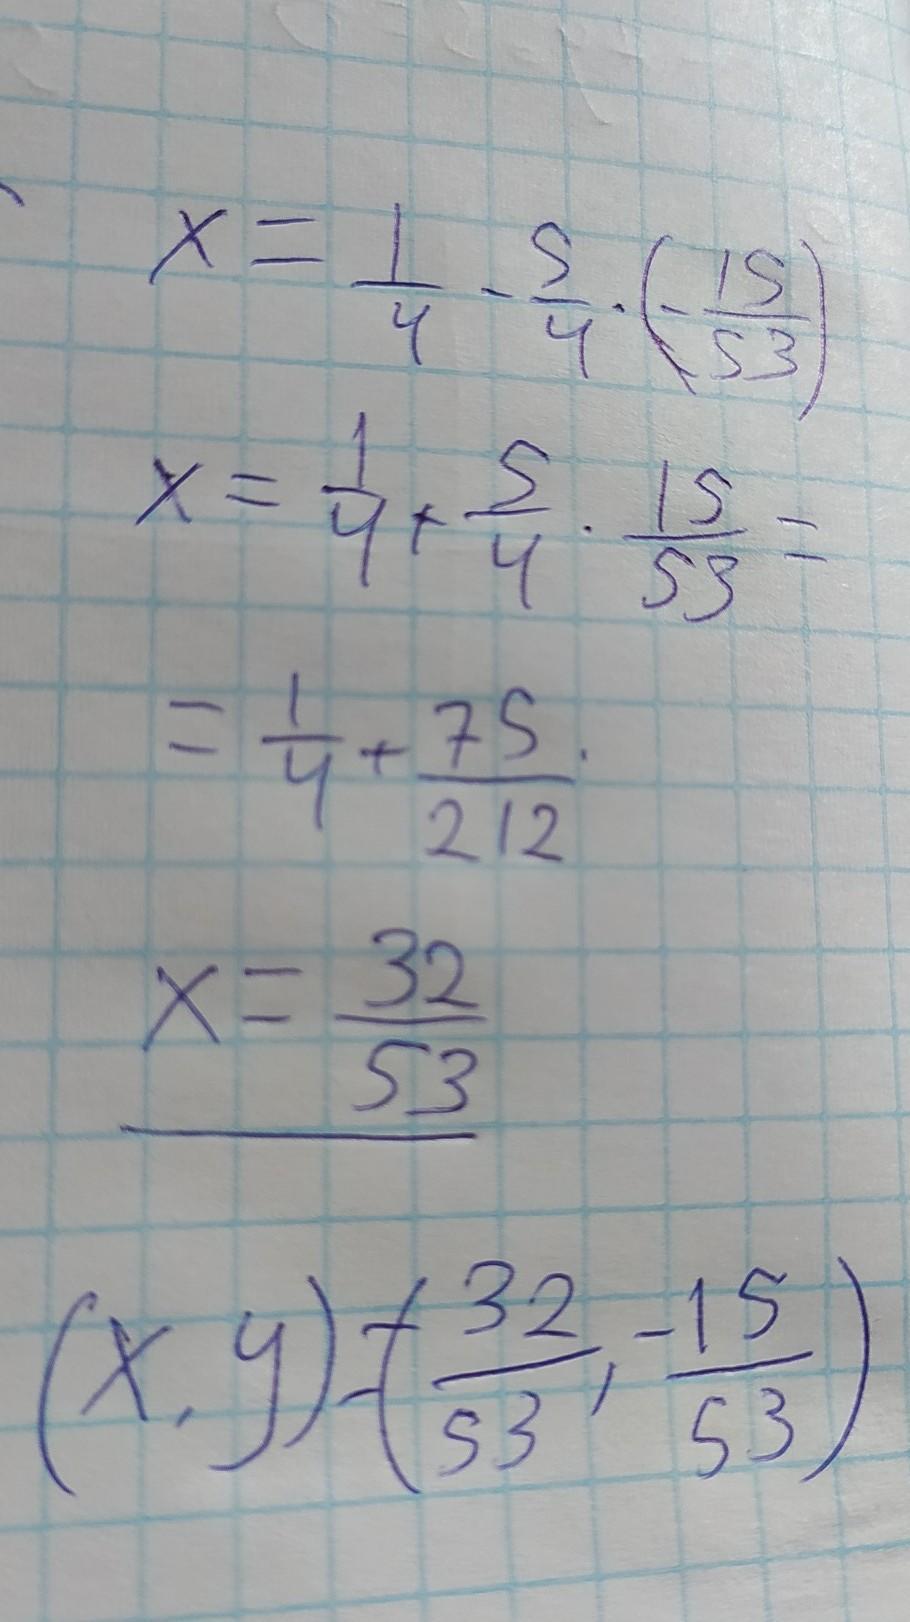 x = 1/4 - 5/4 · (-15/53)
x = 1/4 + 5/4 · 15/53 =
= 1/4 + 75/212.
x = 32/53
(x, y) = (32/53, -15/53)